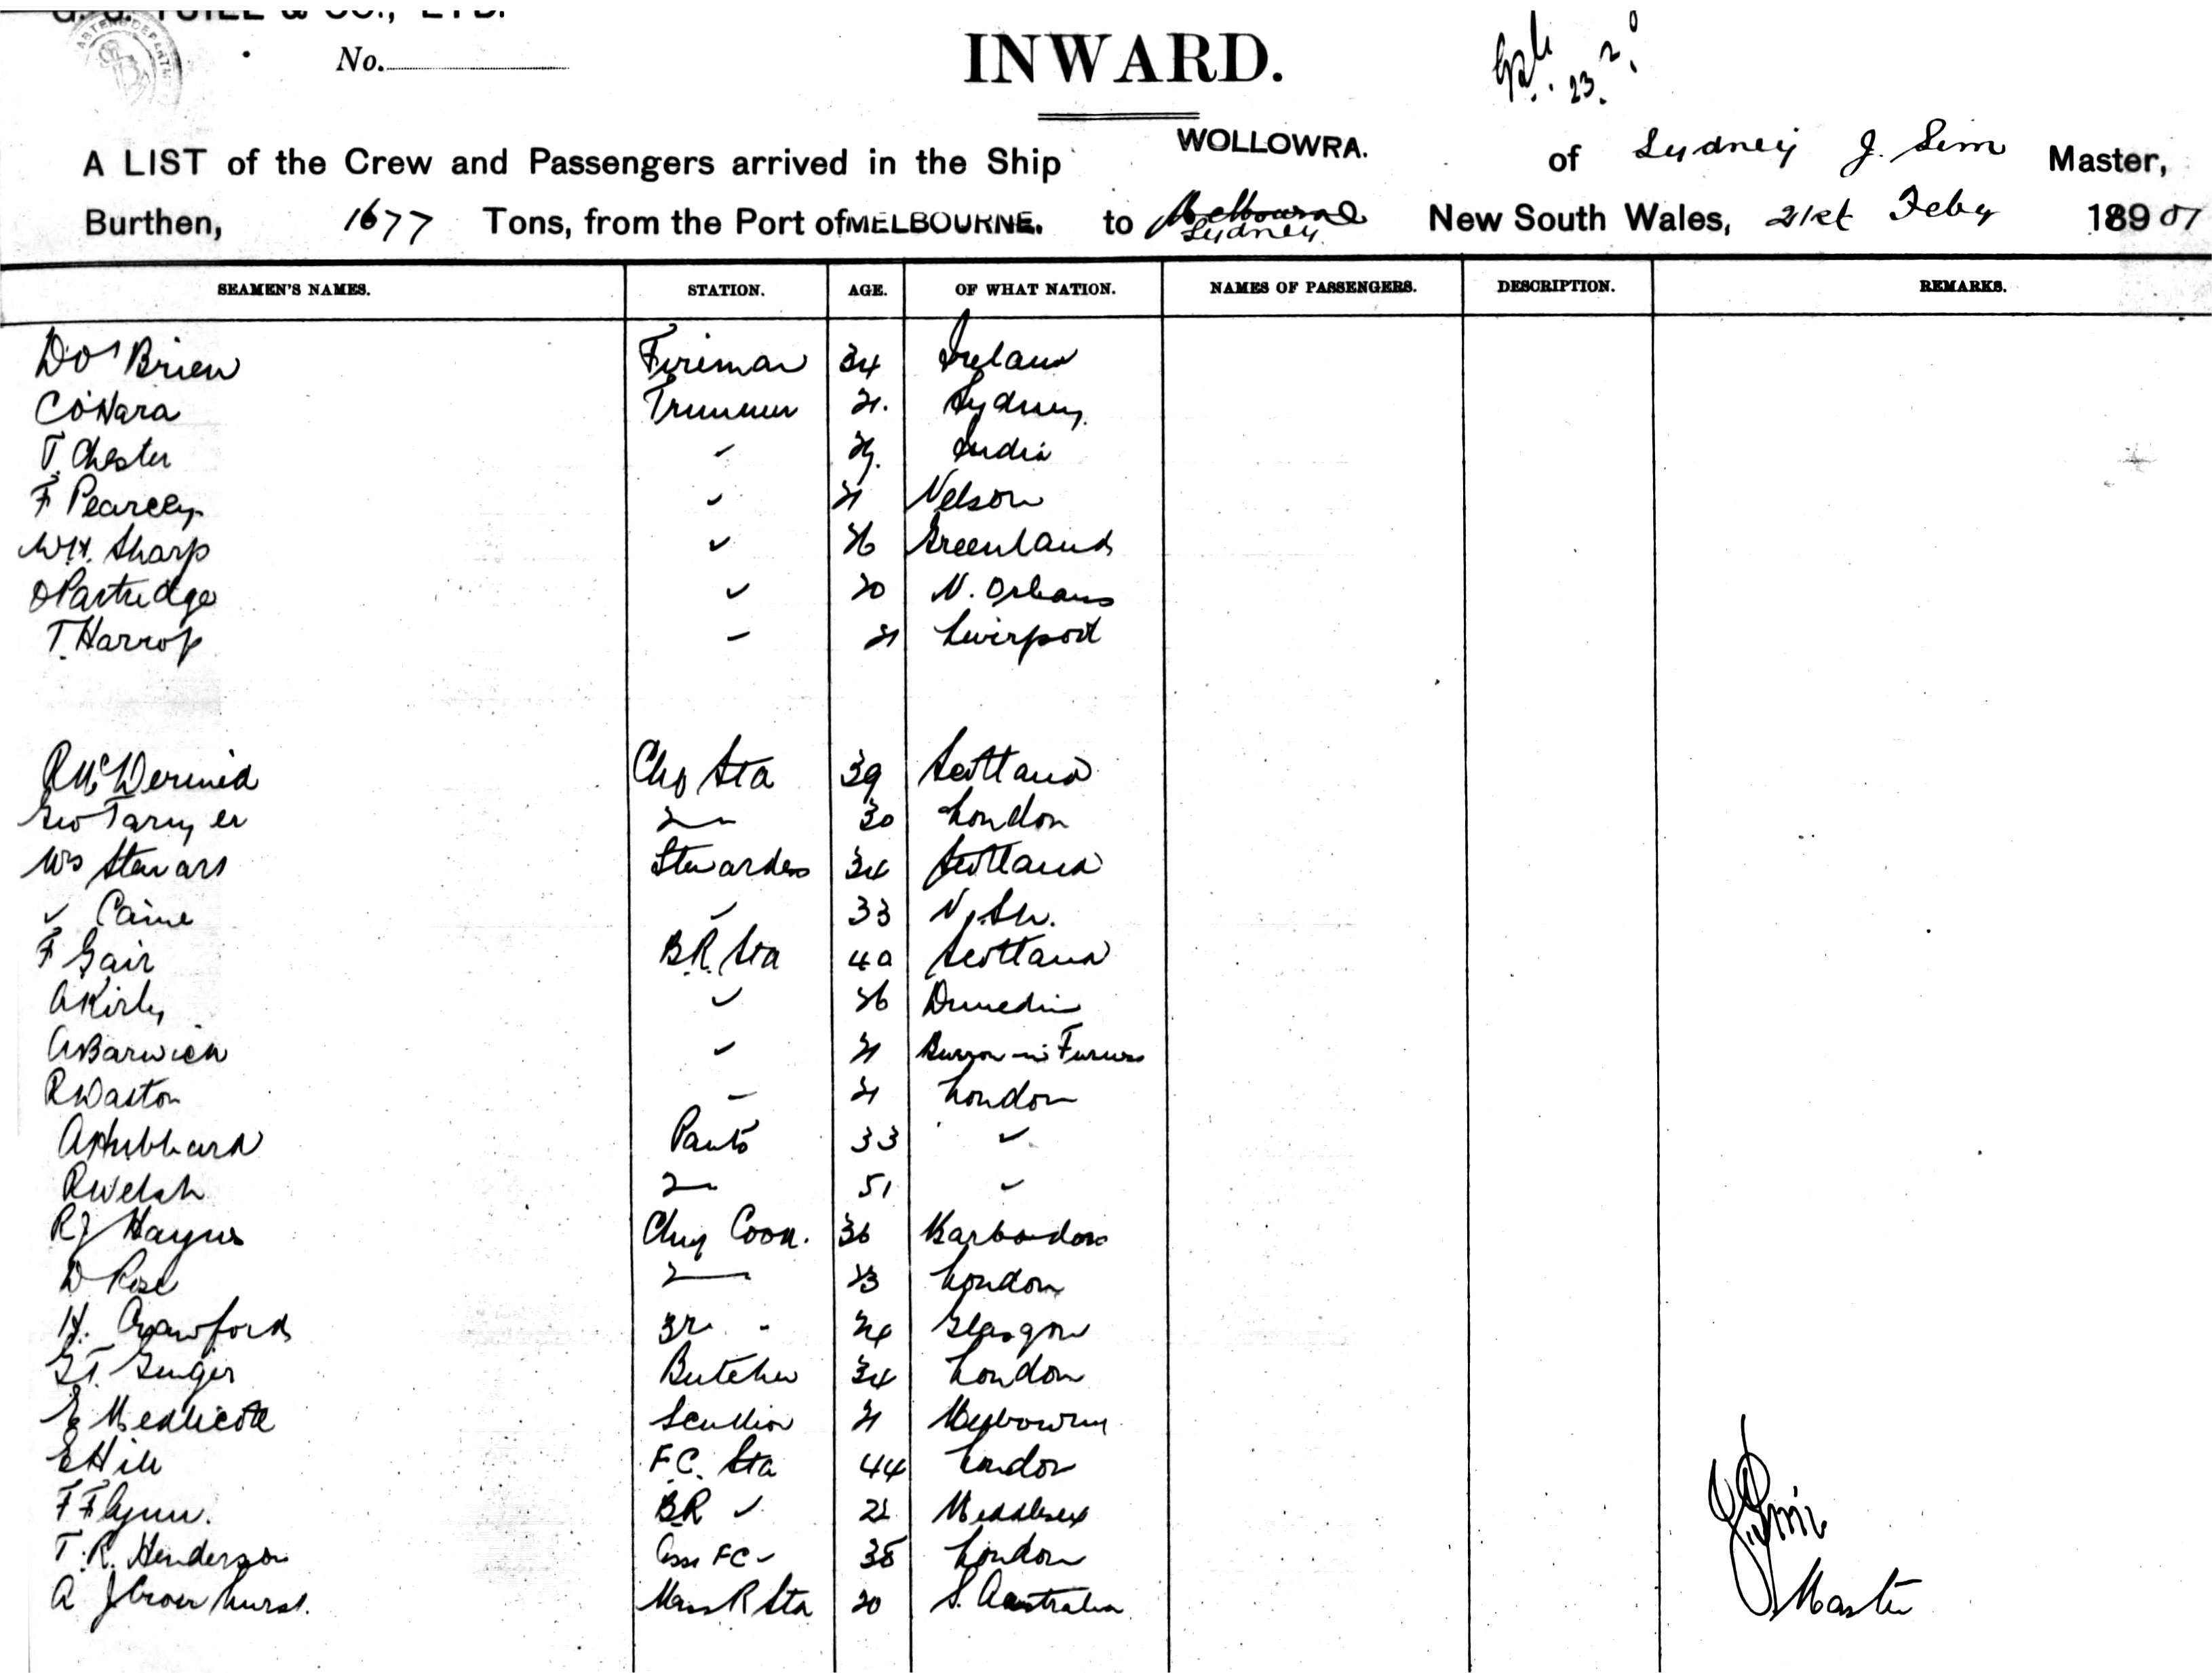 No.
INWARD.
23.2.0
A LIST of the Crew and Passengers arrived in the Ship WOLLOWRA. of Sydney J. Sim Master,
Burthen, 1677 Tons, from the Port of MELBOURNE. to Melbourne Sydney New South Wales, 21st Feby 189 01
SEAMEN'S NAMES. STATION. AGE. OF WHAT NATION. NAMES OF PASSENGERS. DESCRIPTION. REMARKS.
D O'Brien Fireman 34 Ireland
C O'Hara Trimmer 21. Sydney
T. Chester India
F Pearcey 21 Nelson
W.H. Sharp 26 Greenland
O Partridge 20 N. Orleans
T. Harrop 21 Liverpool
R McDermid Chf Sta 39 Scotland
Geo 2 30 London
Mrs Stewart Stewardess 34 Scotland
Caine 33 N.S.W.
F Gair B.R. Sta 40 Scotland
A Kirby 26 Dunedin
A Barwick 21 Barrow-in-Furness
R Waston 21 London
A Hubbard Pants 33
R Welsh 2 51
R J Haynes Chf Cook. 36 Barbados
D Rose 2 23 London
H. Crawford 3r 24 Glasgow
G T. Ginger Butcher 34 London
E Medlicott Scullion 21 Melbourne
E Hill F.C. Sta 44 London
F Flynn. B.R 22 Middlesex
T. R. Henderson Asst FC 38 London
A J Crowhurst. Mess R Sta 20 S. Australia
J Sim
Master